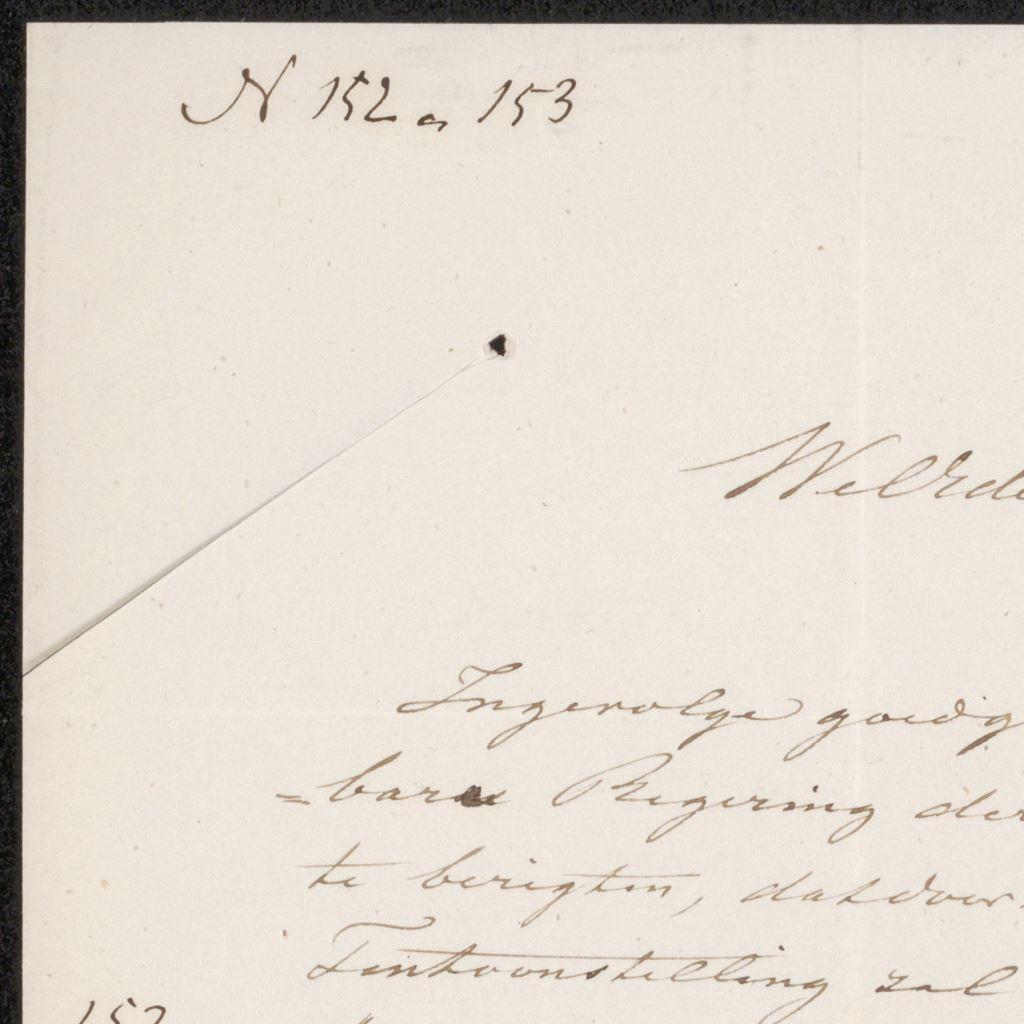 N 152 a 153
WelEde
Ingevolge goedg
=bare Regering der
te berigten, dat door
Tentoonstelling zal
152